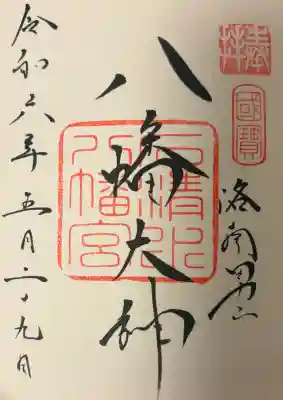 奉拝
國寶
洛南男山
八幡大神
石清水八幡宮
令和六年五月二十九日